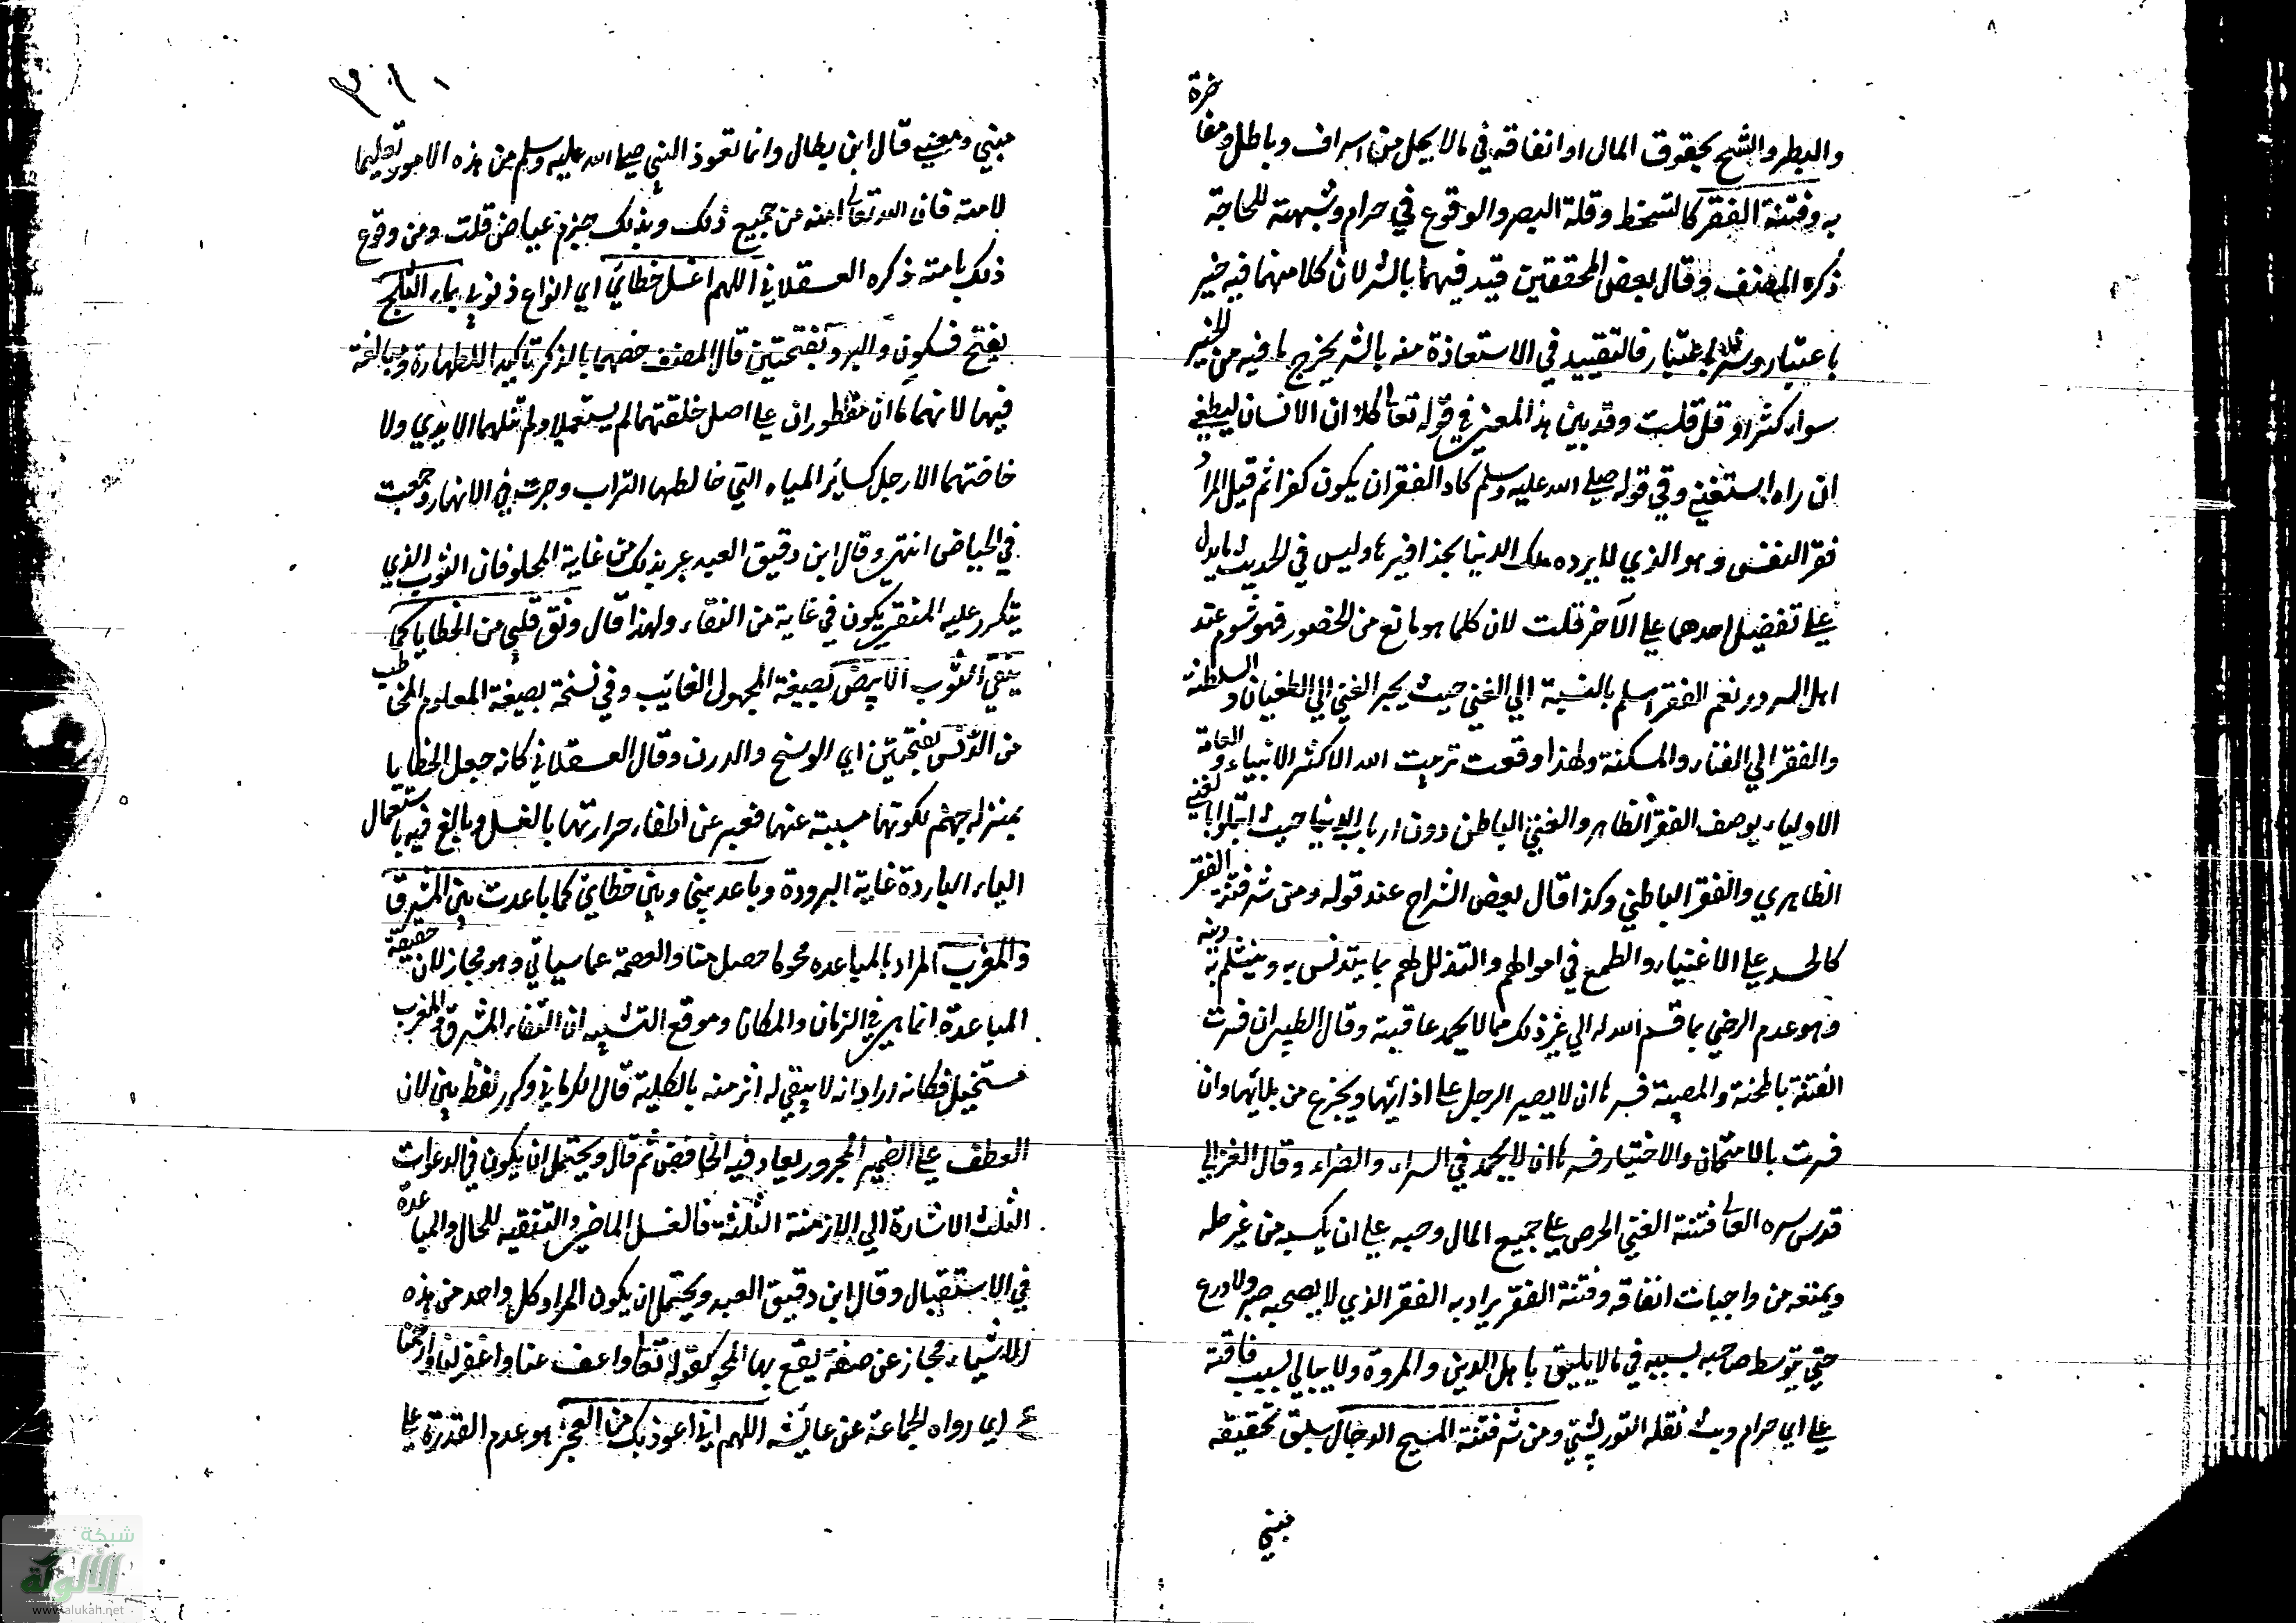 والبطر والشح بحقوق المال او انفاقه في ما لا يحل من اسراف وباطل ومفاخرة
به وفتنة الفقر كالتسخط وقلة الصبر والوقوع في حرام وشبهة للحاجة
ذكره المصنف وقال بعض المحققين قيد فيهما بالشر لان كلا منهما فيه خير
باعتبار وشر باعتبار فالتقييد في الاستعاذة منه بالشر يخرج ما فيه من الخير
سواء كثر او قل قلت وقد بين هذا المعنى في قوله تعالى كلا ان الانسان ليطغى
ان راه استغنى وفي قوله صلى الله عليه وسلم كاد الفقر ان يكون كفرا ثم قيل المراد
فقر النفس وهو الذي لا يرده ملك الدنيا بحذافيرها وليس في الحديث ما يدل
على تفضيل احدهما على الآخر قلت لان كلما هو مانع من الحضور فهو شوم عند
اهل السرور نعم الفقر اسلم بالنسبة الي الغني حيث يجر الغني الي الطغيان والسلطنة
والفقر الي الفناء والمسكنة ولهذا وقعت تربيت الله لاكثر الانبياء وعامة
الاولياء بوصف الفقر الظاهر والغني الباطن دون ارباب الدنيا حيث ابتلوا بالغنى
الظاهري والفقر الباطني وكذا قال بعض الشراح عند قوله ومن شر فتنة الفقر
كالحسد على الاغنياء والطمع في اموالهم والتذلل لهم بما يتدنس به وينثلم به دينه
وهو عدم الرضي بما قسم الله له الي غير ذلك مما لا يحمد عاقبته وقال الطيبي ان فسرت
الفتنة بالمحنة والمصيبة فشرها ان لا يصبر الرجل على اذائها ويجزع من بلائها وان
فسرت بالامتحان والاختبار فشرها ان لا يحمد في السراء والضراء وقال الغزالي
قدس سره العالي فتنة الغني الحرص على جميع المال وحبه على ان يكسبه من غير حله
ويمنعه من واجبات انفاقه وفتنة الفقر يراد به الفقر الذي لا يصحبه صبر ولا ورع
حتي يتوسط صاحبه بسببه في ما لا يليق باهل الدين والمروة ولا يبالي بسبب فاقته
على اي حرام وثب نقله التوربشتي ومن شر فتنة المسيح الدجال سبق تحقيقه
مبني
٣١٠
مبني ومعني قال ابن بطال وانما تعوذ النبي صلى الله عليه وسلم من هذه الامور تعليما
لامته فان الله تعالى امنه من جميع ذلك وبذلك جزم عياض قلت ومن وقوع
ذلك بامته ذكره العسقلاني اللهم اغسل خطاياي اي انواع ذنوبي بماء الثلج
بفتح فسكون والبرد بفتحتين قال المصنف خصهما بالذكر تاكيدا للطهارة ومبالغة
فيهما لانهما ماءان مفطوران على اصل خلقتهما لم يستعملا ولم تنلهما الايدي ولا
خاضتهما الارجل كسائر المياه التي خالطها التراب وجرت في الانهار وجمعت
في الحياض انتهى وقال ابن دقيق العيد عبر بذلك من غاية المحو فان الثوب الذي
يتكرر عليه المنقي يكون في غاية من النقاء ولهذا قال ونق قلبي من الخطايا كما
ينقي الثوب الابيض بصيغة المجهول الغائب وفي نسخة بصيغة المعلوم المخاطب
من الدنس بفتحتين اي الوسخ والدرن وقال العسقلاني كانه جعل الخطايا
بمنزله جهنم لكونها مسببة عنها فعبر عن اطفاء حرارتها بالغسل وبالغ فيه باستعمال
المياه الباردة غاية البرودة وباعد بيني وبين خطاياي كما باعدت بين المشرق
والمغرب المراد بالمباعده محو ما حصل منها والعصمة عما سياتي وهو مجاز لان حقيقة
المباعدة انما هي في الزمان والمكان وموقع التشبيه ان التقاء المشرق والمغرب
مستحيل فكانه اراد انه لا يبقي له اثر منه بالكلية قال الكرماني وكرر لفظ بين لان
العطف على الضمير المجرور يعاد فيه الخافض ثم قال ويحتمل ان يكون في الدعوات
الثلث الاشارة الي الازمنة الثلثة فالغسل الماضي والتنقيه للحال والمباعدة
في الاستقبال وقال ابن دقيق العيد ويحتمل ان يكون المراد كل واحد من هذه
الاشياء مجاز عن صفة يقع بها المحو كقوله تعالى واعف عنا واغفر لنا وارحمنا
ع اي رواه الجماعة عن عائشة اللهم اني اعوذ بك من العجز هو عدم القدرة على
شبكة
الألوكة
www.alukah.net